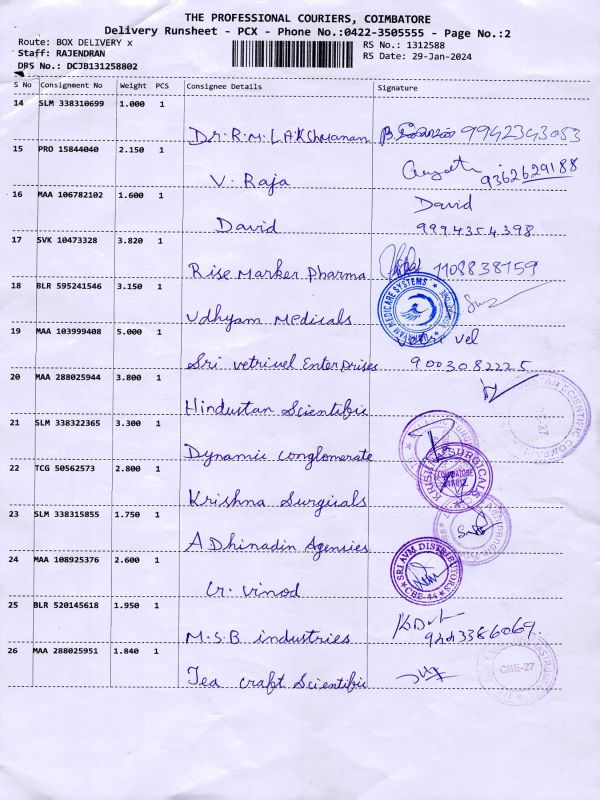 THE PROFESSIONAL COURIERS, COIMBATORE
Delivery Runsheet - PCX - Phone No.:0422-3505555 - Page No.:2
Route: BOX DELIVERY x
RS No.: 1312588
Staff: RAJENDRAN
RS Date: 29-Jan-2024
DRS No.: DCJB131258802
S No Consignment No Weight PCS Consignee Details Signature
14 SLM 338310699 1.000 1
Dr. R.M. LAKShmanan 9942343083
15 PRO 15844040 2.150 1
V. Raja 9362629188
16 MAA 106782102 1.600 1
David
David 9994354398
17 SVK 10473328 3.820 1
Rise Marker Pharma 1108838159
18 BLR 595241546 3.150 1
MEDICARE SYSTEMS
Udhyam Medicals
19 MAA 103999408 5.000 1
vel
Sri vetrivel EnterPrises 9003082225
20 MAA 288025944 3.800 1
SCIENTIFIC COMPANY
Hindustan Scientific
21 SLM 338322365 3.300 1
Dynamic conglomerate
22 TCG 50562573 2.800 1
KRISHNA SURGICALS
COIMBATORE
Krishna Surgicals
23 SLM 338315855 1.750 1
ADhinadin Agensies
24 MAA 108925376 2.600 1
SRI AVM DISTRIBUTORS
CBE-44
Cr. Vinod
25 BLR 520145618 1.950 1
M.S.B industries 9443386069
26 MAA 288025951 1.840 1
CBE-27
Tea craft Scientific